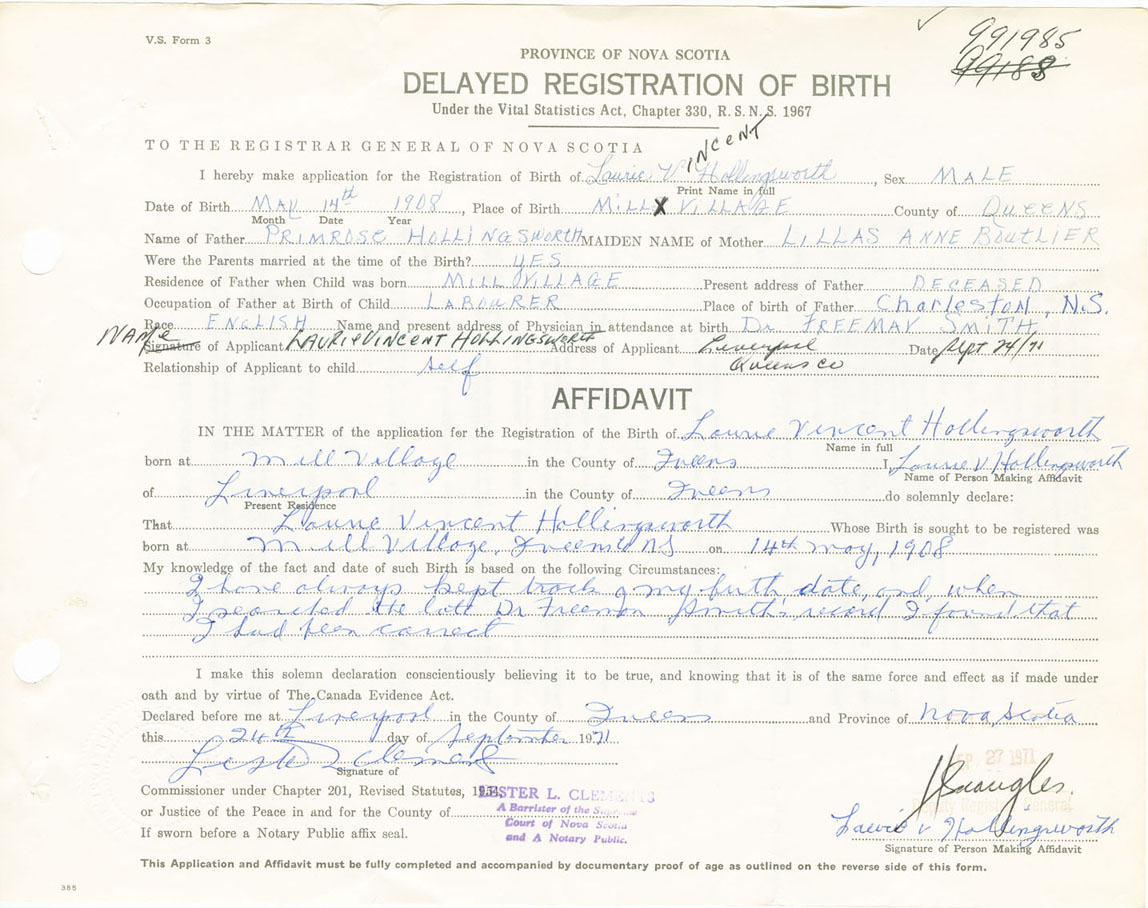 V.S. Form 3
991985
99188
PROVINCE OF NOVA SCOTIA
DELAYED REGISTRATION OF BIRTH
Under the Vital Statistics Act, Chapter 330, R.S.N.S. 1967
TO THE REGISTRAR GENERAL OF NOVA SCOTIA
I hereby make application for the Registration of Birth of Laurie Vincent Hollingsworth, Sex MALE
Print Name in full
Date of Birth MAY 14th 1908, Place of Birth MILL VILLAGE County of QUEENS
Month Date Year
Name of Father PRIMROSE HOLLINGSWORTH MAIDEN NAME of Mother LILLAS ANNE BOUTLIER
Were the Parents married at the time of the Birth? YES
Residence of Father when Child was born MILL VILLAGE Present address of Father DECEASED
Occupation of Father at Birth of Child LABOURER Place of birth of Father Charleston, N.S.
Race ENGLISH Name and present address of Physician in attendance at birth Dr FREEMAN SMITH
NAME Signature of Applicant LAURIE VINCENT HOLLINGSWORTH Address of Applicant Liverpool Queens Co Date Sept 24/71
Relationship of Applicant to child self
AFFIDAVIT
IN THE MATTER of the application for the Registration of the Birth of Laurie Vincent Hollingsworth
Name in full
born at Mill Village in the County of Queens I, Laurie V Hollingsworth
Name of Person Making Affidavit
of Liverpool in the County of Queens do solemnly declare:
Present Residence
That Laurie Vincent Hollingsworth Whose Birth is sought to be registered was
born at Mill Village, Queens Co NS on 14th May, 1908
My knowledge of the fact and date of such Birth is based on the following Circumstances:
I have always kept track of my birth date, and, when
I searched the late Dr Freeman Smith's record I found that
I had been correct
I make this solemn declaration conscientiously believing it to be true, and knowing that it is of the same force and effect as if made under
oath and by virtue of The Canada Evidence Act.
Declared before me at Liverpool in the County of Queens and Province of Nova Scotia
this 24th day of September 1971
Lester L Clements
Signature of
Commissioner under Chapter 201, Revised Statutes, 1954,
or Justice of the Peace in and for the County of
If sworn before a Notary Public affix seal.
LESTER L. CLEMENTS
A Barrister of the Supreme
Court of Nova Scotia
and A Notary Public.
SEP 27 1971
Deputy Registrar General
Laurie V Hollingsworth
Signature of Person Making Affidavit
This Application and Affidavit must be fully completed and accompanied by documentary proof of age as outlined on the reverse side of this form.
385